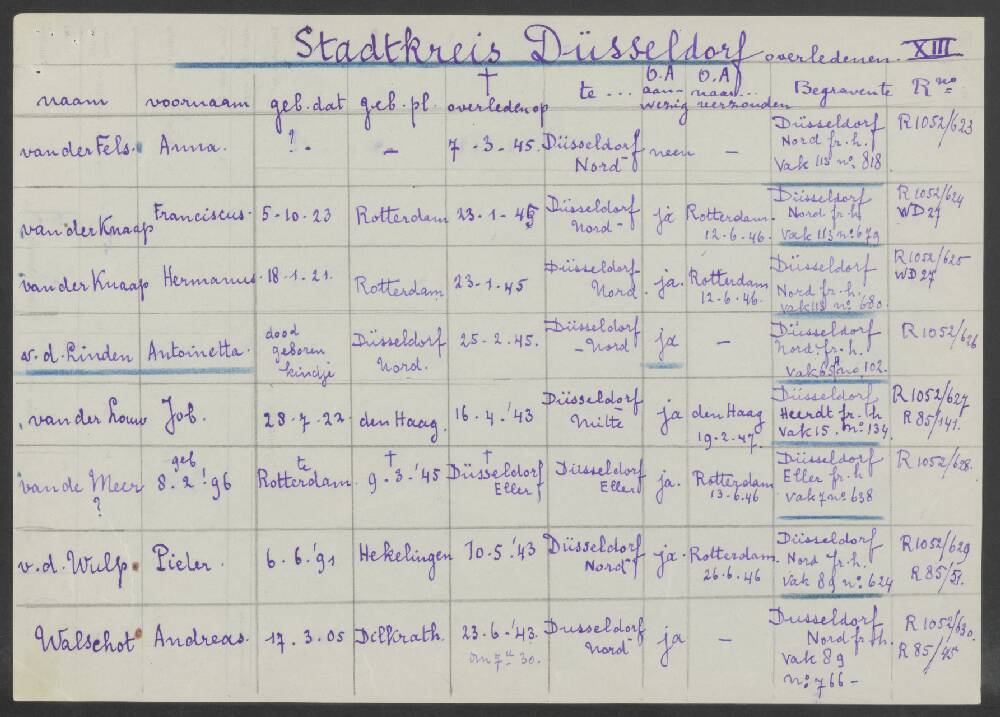 Stadtkreis Düsseldorf overledenen. XIII
naam voornaam geb. dat geb. pl. † overleden op te ... O.A aanwezig O.A naar... verzonden Begravente R no
van der Fels. Anna. ? - - 7 - 3 - 45. Düsseldorf Nord neen - Düsseldorf Nord fr. h. Vak 113 no. 818 R 1052/623
van der Knaap Franciscus. 5-10-23 Rotterdam 23-1-45 Düsseldorf Nord- ja Rotterdam 12-6-46. Düsseldorf Nord fr. h Vak 113 no 679 R 1052/624 WD 27
van der Knaap Hermanus 18-1-21. Rotterdam 23-1-45 Düsseldorf- Nord ja. Rotterdam 12-6-46. Düsseldorf Nord fr. h. vak 113 no 680. R 1052/625 WD 27
v. d. Linden Antoinetta. dood geboren kindje Düsseldorf Nord. 25-2-45. Düsseldorf - Nord ja - Düsseldorf Nord. fr. h. Vak 65A no. 102. R 1052/626
van der Louw Job. 28-7-22 den Haag. 16-4-'43 Düsseldorf Mitte ja den Haag 19-2-47. Düsseldorf Heerdt fr. h Vak 15. no. 134. R 1052/627 R 85/141.
van de Meer ? geb 8.2!96 te Rotterdam. † 9-3-'45 † Düsseldorf Eller Düsseldorf Eller ja. Rotterdam 13-6-46 Düsseldorf Eller fr. h Vak 7 no 638 R 1052/628.
v. d. Wulp. Pieter. 6.6.'91 Hekelingen 10-5-'43 Düsseldorf Nord ja. Rotterdam. 26-6-46 Düsseldorf Nord fr. h. Vak 89 no. 624 R 1052/629 R 85/51.
Walschot Andreas. 17.3.05 Dilkrath. 23-6-'43. om 7 u 30. Dusseldorf Nord ja - Dusseldorf Nord fr. h. Vak 89 no 766 - R 1052/630. R 85/45